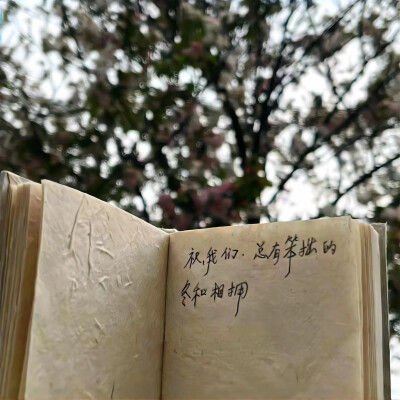 祝我们.总有笨拙的
和相拥